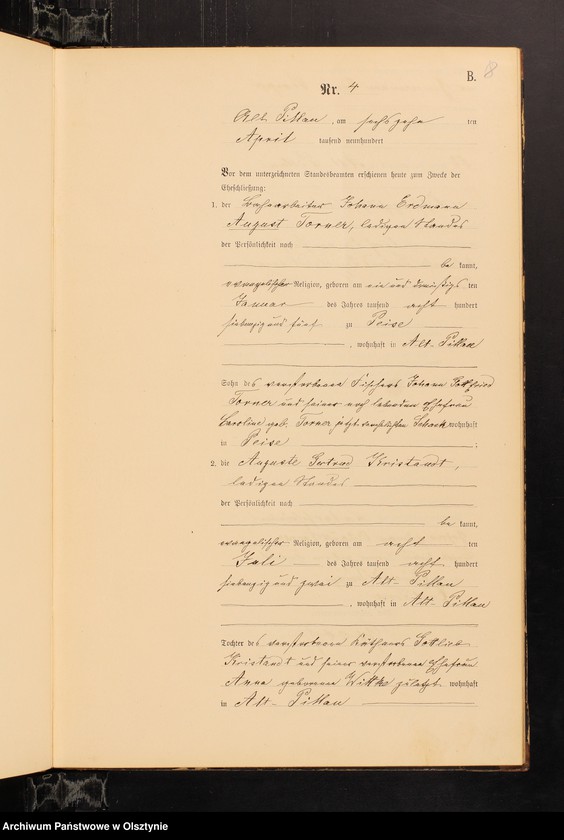 B. 8
Nr. 4
Alt Pillau, am sechszehn ten
April tausend neunhundert
Vor dem unterzeichneten Standesbeamten erschienen heute zum Zwecke der
Eheschließung:
1. der Johann Erdmann
August Torner, ledigen Standes
der Persönlichkeit nach
be kannt,
evangelischer Religion, geboren am ein und dreißigs ten
Januar des Jahres tausend acht hundert
siebenzig und fünf zu Peise
, wohnhaft in Alt-Pillau
Sohn des verstorbenen Fischers Johann Gottfried
Torner und seiner noch lebenden Ehefrau
Caroline geb. Torner jetzt verehelichten wohnhaft
in Peise ;
2. die Auguste Gertrud Kristandt,
ledigen Standes
der Persönlichkeit nach
be kannt,
evangelischer Religion, geboren am acht ten
Juli des Jahres tausend acht hundert
siebenzig und zwei zu Alt-Pillau
, wohnhaft in Alt-Pillau
Tochter des verstorbenen Käthners Gottlieb
Kristandt und seiner verstorbenen Ehefrau
Anna geborenen Wittke zuletzt wohnhaft
in Alt-Pillau
Archiwum Państwowe w Olsztynie